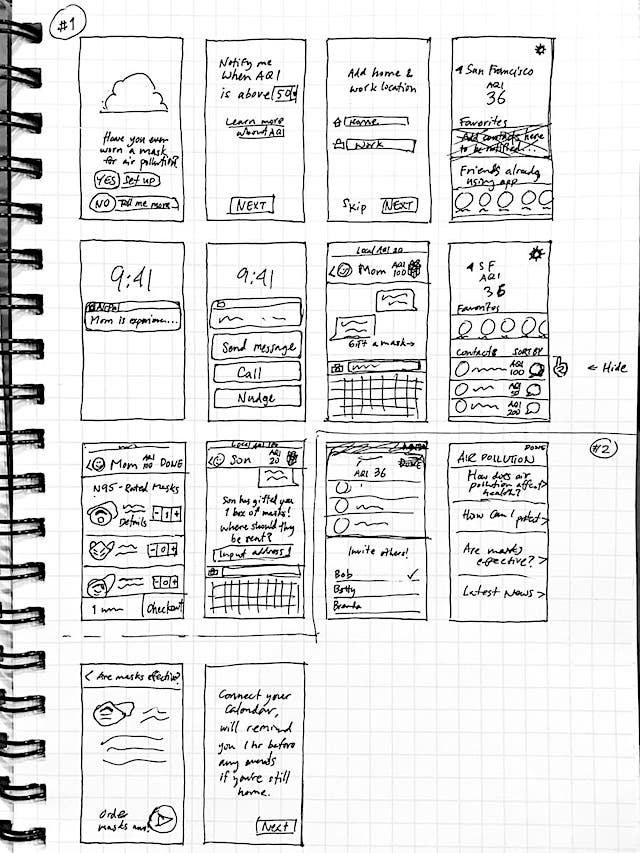 #1
Have you ever
worn a mask
for air pollution?
YES Set up
NO Tell me more
Notify me
when AQI
is above 50
Learn more
about AQI
NEXT
Add home &
work location
Home
Work
Skip NEXT
San Francisco
AQI
36
Favorites
Add contacts here
to be notified...
Friends already
using app
9:41
Mom is experienc...
9:41
Send message
Call
Nudge
Local AQI 20
< Mom AQI
100
Gift a mask→
SF
AQI
36
Favorites
Contacts SORT BY
AQI
100
AQI
50
AQI
200
← Hide
< Mom AQI
100 DONE
N95-Rated Masks
Details - 1 +
- 0 +
- 0 +
1 Checkout
Local AQI 100
< Son AQI
20
Son has gifted you
1 box of masks!
Where should they
be sent?
Input address!
#2
DONE
AQI 36
Invite others!
Bob ✓
Betty
Branda
DONE
AIR POLLUTION
How does air
pollution affect >
health?
How can I protect >
Are masks
effective? >
Latest News >
< Are masks effective?
Order
masks now!
Connect your
Calendar,
will remind
you 1 hr before
any events
if you're still
home.
Next